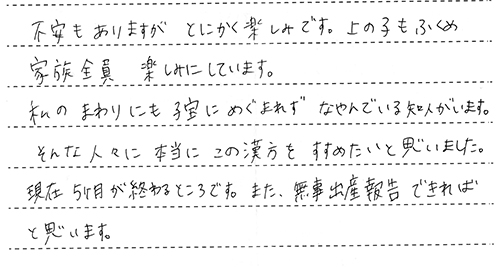 不安もありますが とにかく楽しみです。上の子もふくめ
家族全員 楽しみにしています。
私の まわりにも 子宝に めぐまれず なやんでいる知人がいます。
そんな人々に 本当に この漢方を すすめたいと思いました。
現在 5ヶ月が終わるところです。また、無事出産報告できれば
と思います。